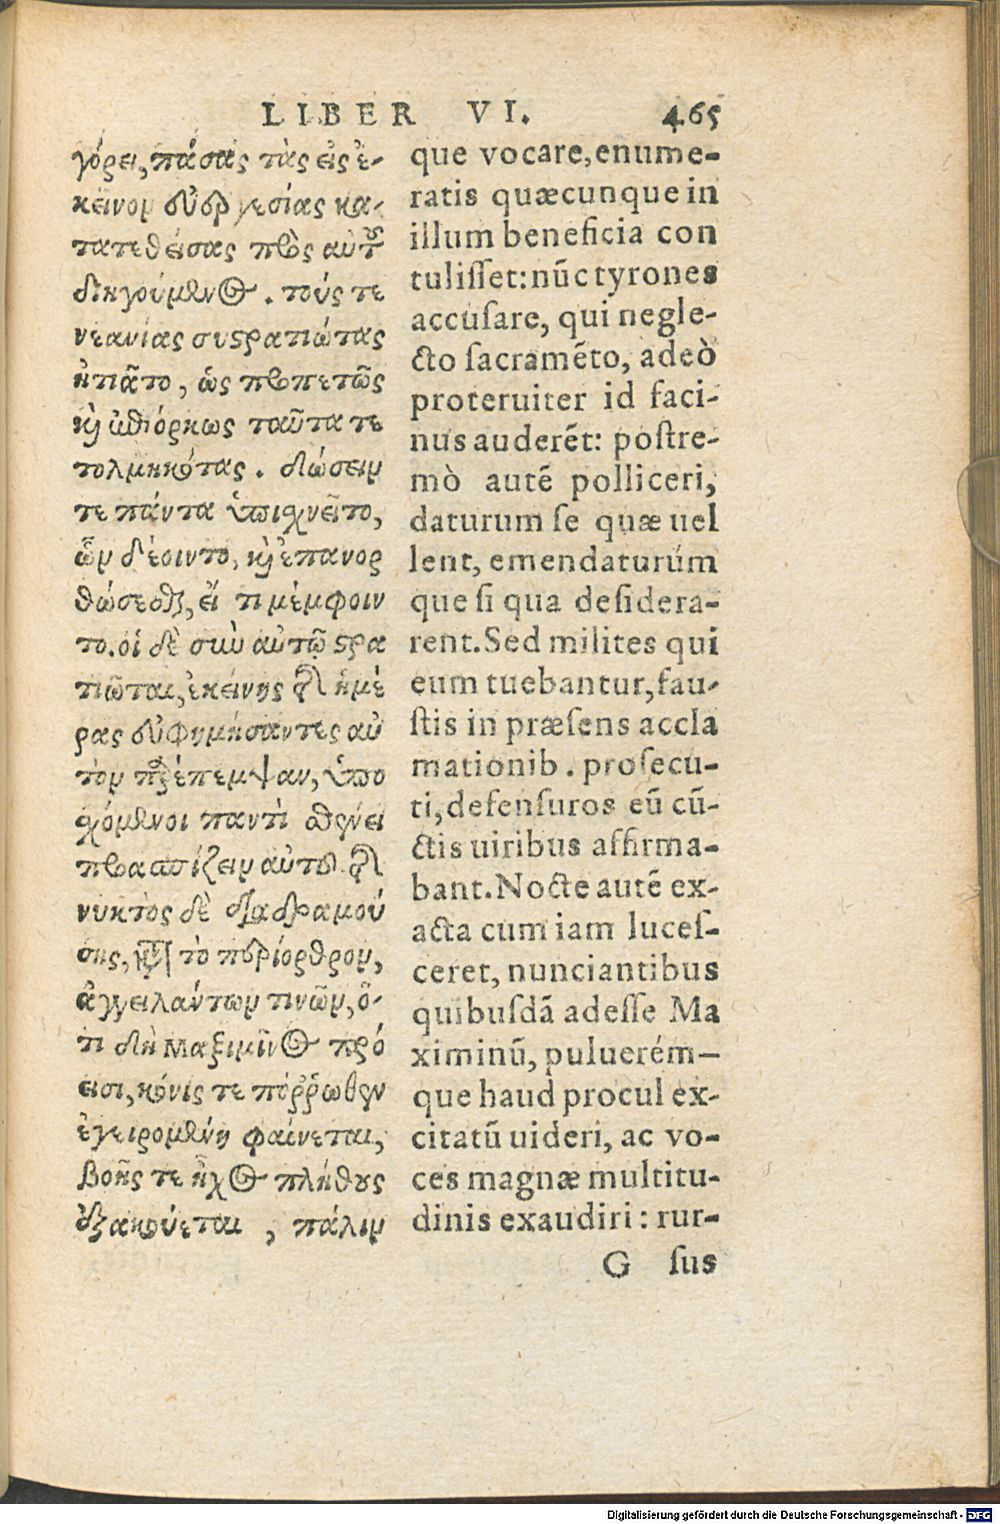 LIBER VI. 465
γόρει, πάσας τὰς εἰς ἐ-
κεῖνον εὐεργεσίας κα-
τατεθείσας πρὸς αὐτοῦ
διηγούμενος. τούς τε
νεανίας συστρατιώτας
ᾐτιᾶτο, ὡς προπετῶς
καὶ ἐπιόρκως ταῦτα τε
τολμηκότας. δώσειν
τε πάντα ὑπισχνεῖτο,
ὧν δέοιντο, καὶ ἐπανορ
θώσεσθαι, εἴ τι μέμφοιν
το. οἱ δὲ σὺν αὐτῷ στρα
τιῶται, ἐκείνης μὲν ἡμέ
ρας εὐφημήσαντες αὐ
τὸν παρέπεμψαν, ὑπο
χόμενοι παντὶ σθένει
προασπίζειν αὐτοῦ. τῆς
νυκτὸς δὲ διαδραμού
σης, κατὰ τὸ περίορθρον,
ἀγγειλάντων τινῶν, ὅ-
τι δὴ Μαξιμῖνος πρό
εισι, κόνις τε πόῤῥωθεν
ἐγειρομένη φαίνεται,
βοῆς τε ἦχος πλήθους
ἐξακούεται, πάλιν
que vocare, enume-
ratis quæcunque in
illum beneficia con
tulisset: nūc tyrones
accusare, qui negle-
cto sacramēto, adeò
proteruiter id faci-
nus auderēt: postre-
mò autē polliceri,
daturum se quæ uel
lent, emendaturúm
que si qua desidera-
rent. Sed milites qui
eum tuebantur, fau-
stis in præsens accla
mationib. prosecu-
ti, defensuros eū cū-
ctis uiribus affirma-
bant. Nocte autē ex-
acta cum iam luces-
ceret, nunciantibus
quibusdā adesse Ma
ximinū, puluerém-
que haud procul ex-
citatū uideri, ac vo-
ces magnæ multitu-
dinis exaudiri: rur-
G sus
Digitalisierung gefördert durch die Deutsche Forschungsgemeinschaft - DFG